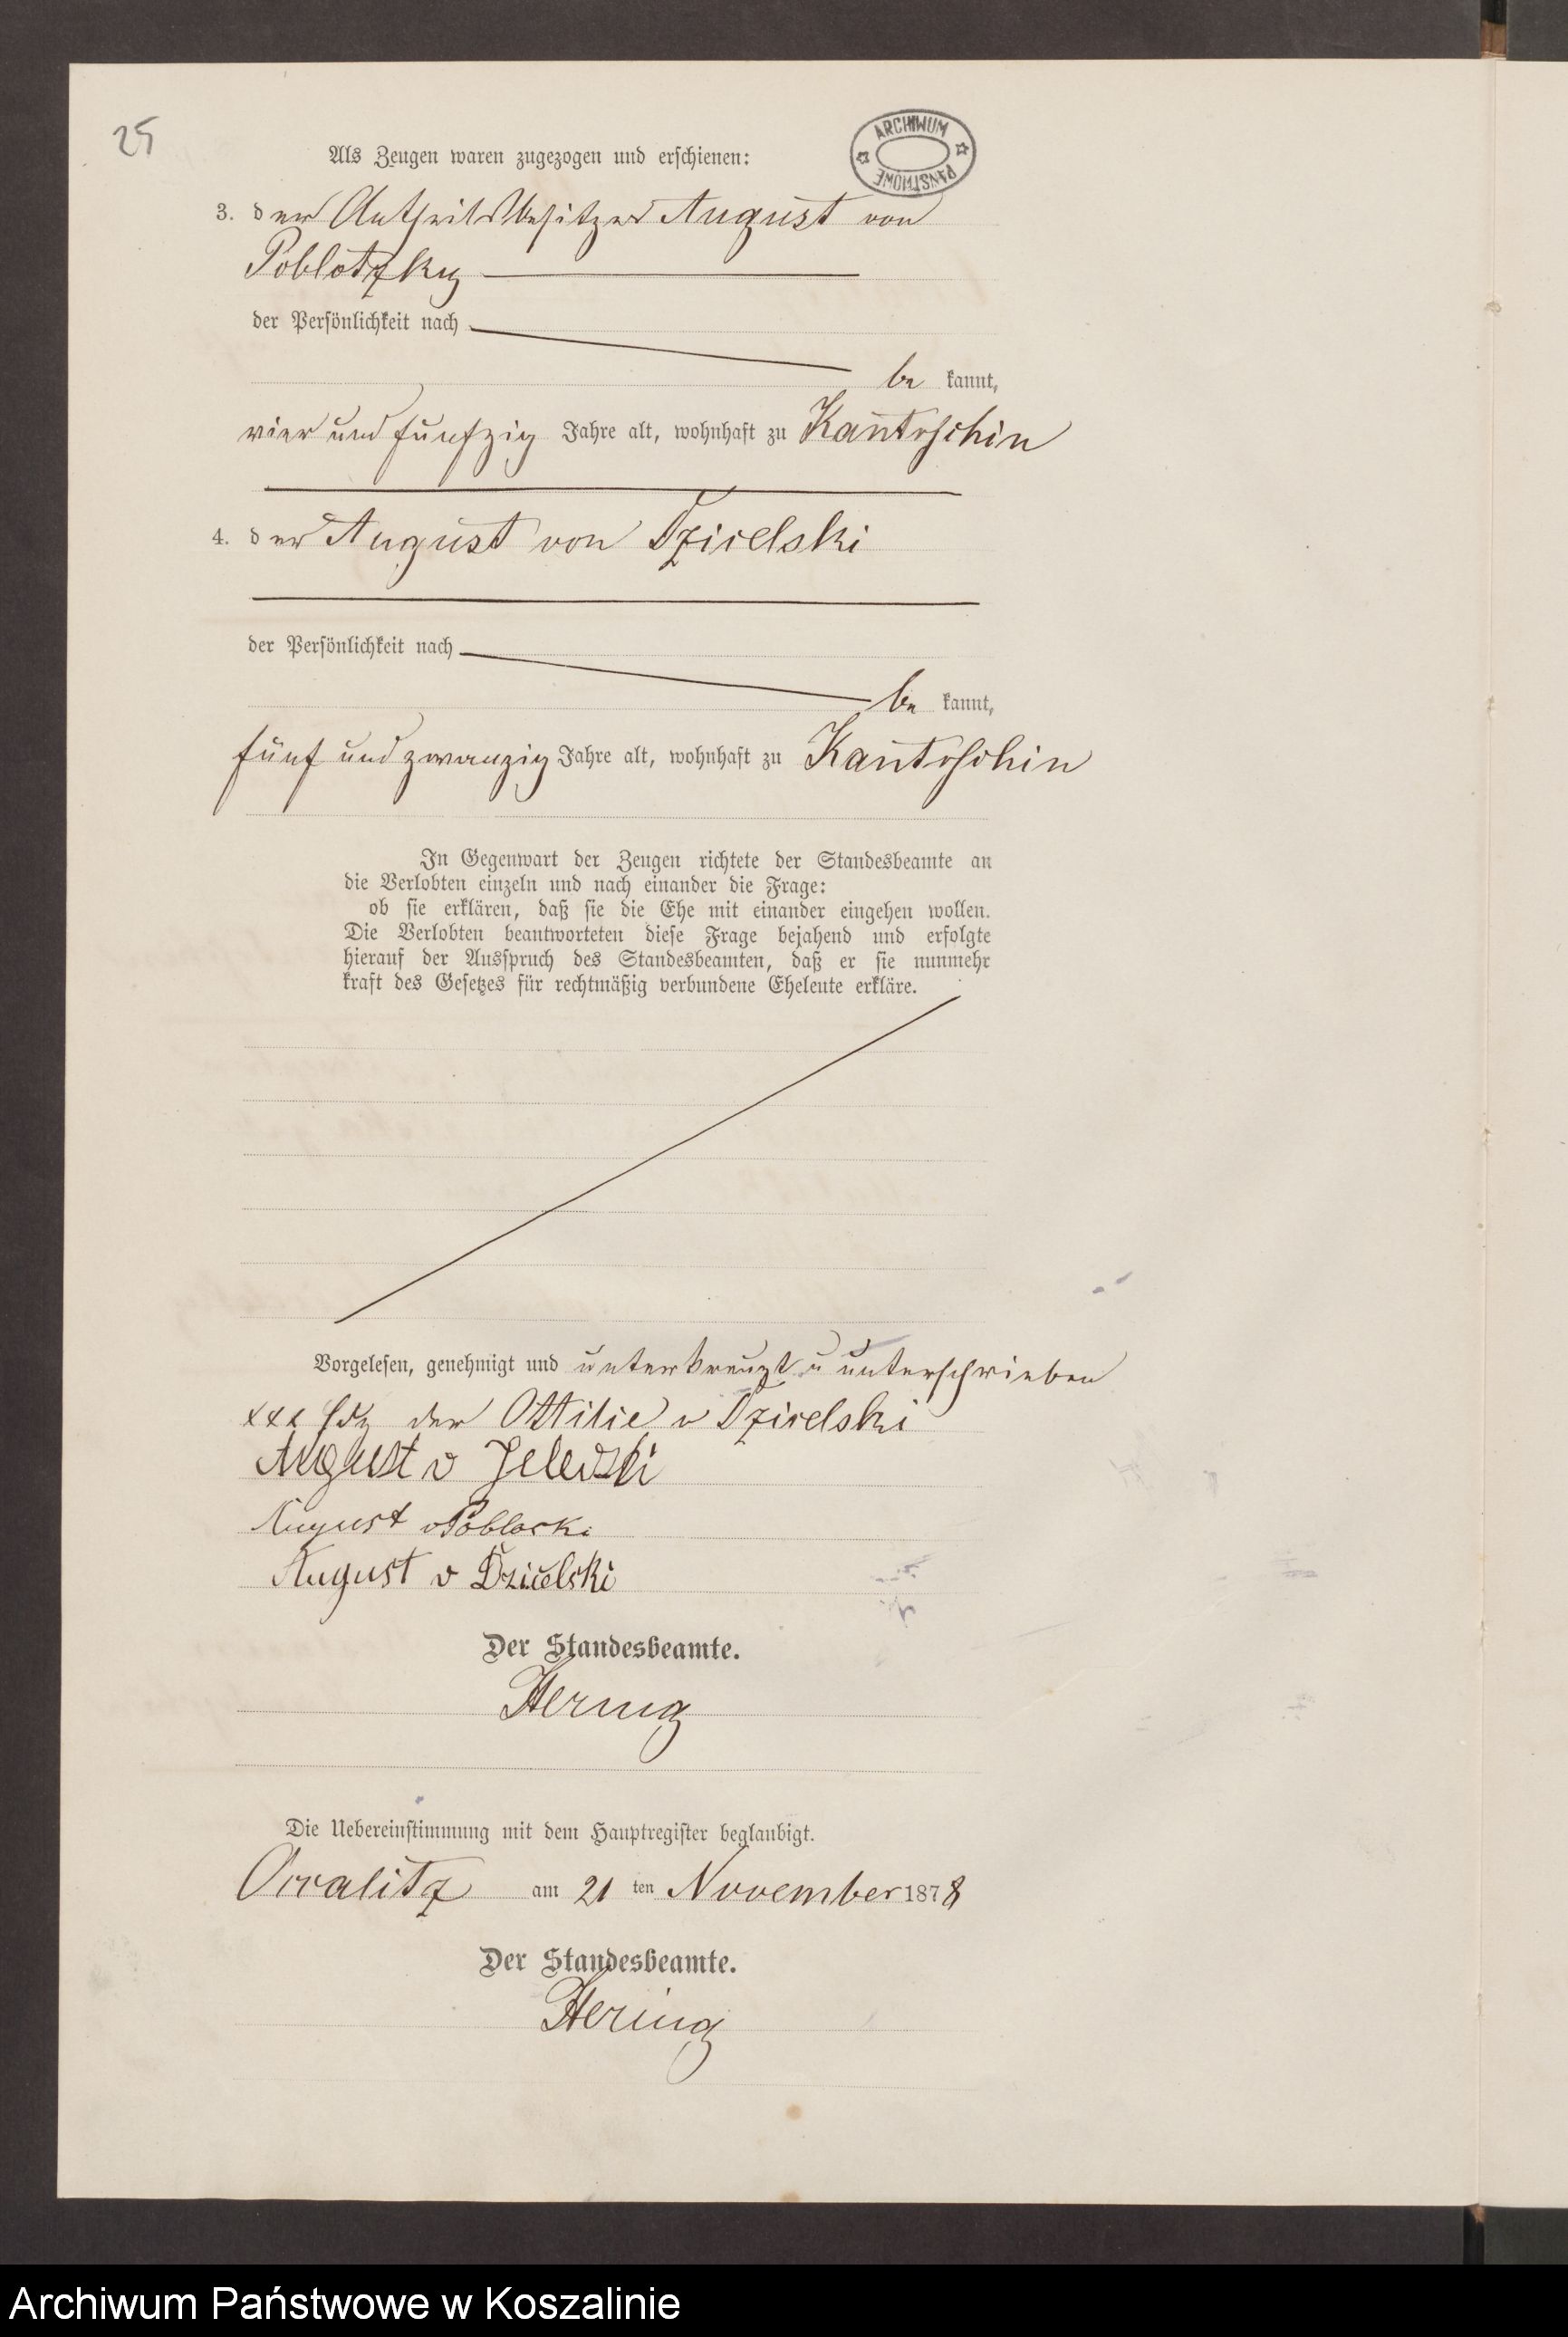 25
ARCHIWUM
PAŃSTWOWE
Als Zeugen waren zugezogen und erschienen:
3. der Antheilsbesitzer August von
Poblotzky
der Persönlichkeit nach
be kannt,
vier und fünfzig Jahre alt, wohnhaft zu Kantrschin
4. der August von Dzicelski
der Persönlichkeit nach
be kannt,
fünf und zwanzig Jahre alt, wohnhaft zu Kantrschin
In Gegenwart der Zeugen richtete der Standesbeamte an
die Verlobten einzeln und nach einander die Frage:
ob sie erklären, daß sie die Ehe mit einander eingehen wollen.
Die Verlobten beantworteten diese Frage bejahend und erfolgte
hierauf der Ausspruch des Standesbeamten, daß er sie nunmehr
kraft des Gesetzes für rechtmäßig verbundene Eheleute erkläre.
Vorgelesen, genehmigt und unterkreuzt u unterschrieben
xxx Hdz der Ottilie v Dzicelski
August v Jelewski
August v Poblocki
August v Dzicelski
Der Standesbeamte.
Hering
Die Uebereinstimmung mit dem Hauptregister beglaubigt.
Occalitz am 21 ten November 1878
Der Standesbeamte.
Hering
Archiwum Państwowe w Koszalinie